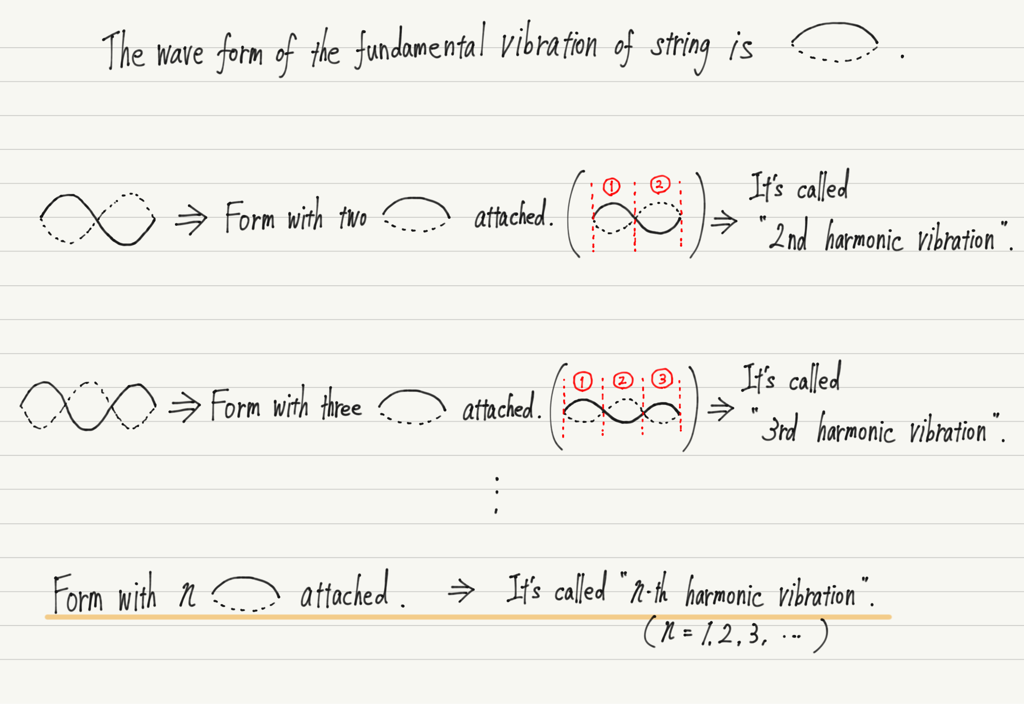 The wave form of the fundamental vibration of string is .
⇒ Form with two attached. ( ① ② ) ⇒ It's called
"2nd harmonic vibration".
⇒ Form with three attached. ( ① ② ③ ) ⇒ It's called
"3rd harmonic vibration".
⋮
Form with n attached. ⇒ It's called "n-th harmonic vibration".
(n = 1, 2, 3, ⋯)